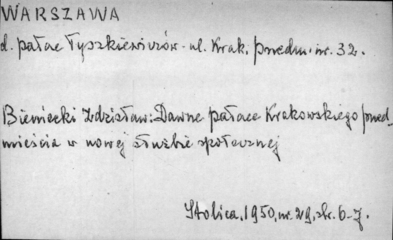 WARSZAWA
d. pałac Tyszkiewiczów - ul. Krak. przedm. nr. 32.
Bieniecki Zdzisław: Dawne pałace Krakowskiego przed-
mieścia w nowej służbie społecznej
Stolica, 1950, nr. 29, str. 6-7.